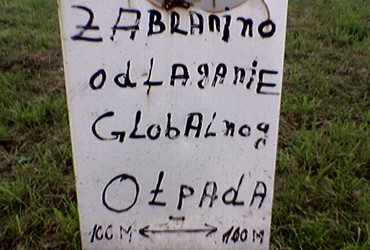 ZABRANjNO
OdŁAGANiE
GLObALNOg
OŁPAdA
100M ⟷ 100M